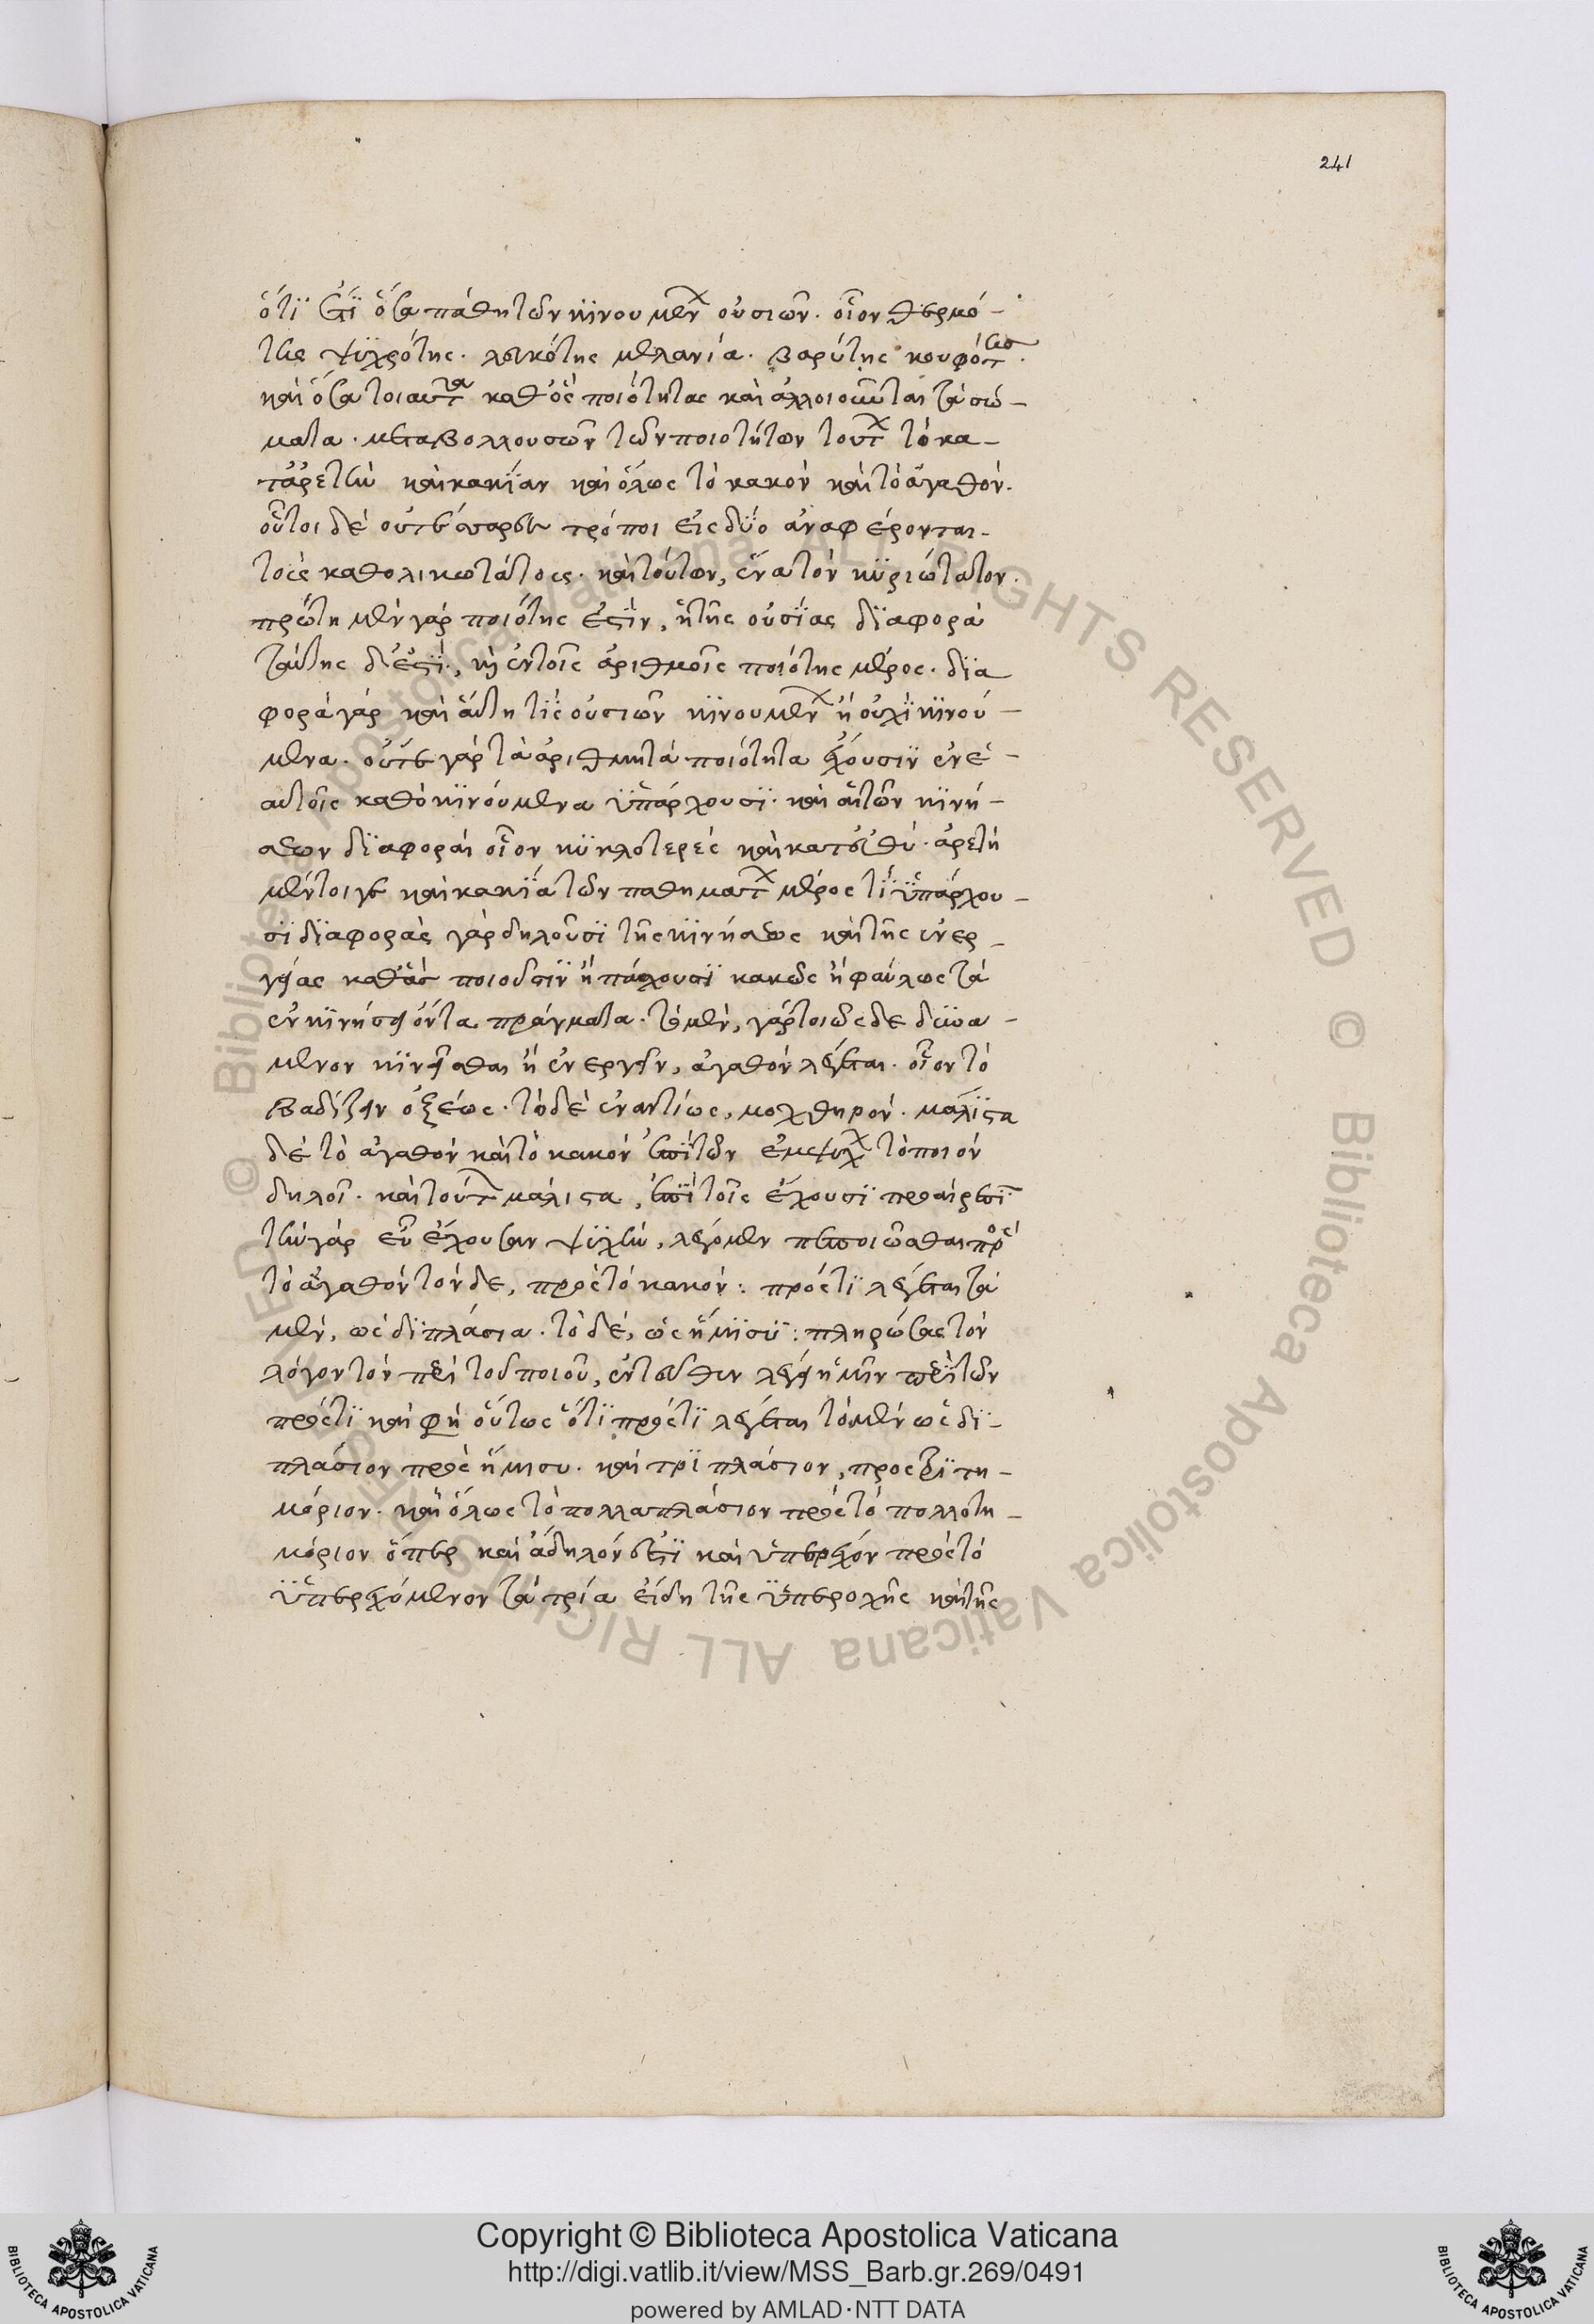 241
ὅτι ἔτι ὅσα πάθη τῶν κινουμένων οὐσιῶν. οἷον θερμό-
της ψυχρότης. λευκότης μελανία. βαρύτης κουφότης.
καὶ ὅσα τοιαῦτα καθ' ἃς ποιότητας καὶ ἀλλοιοῦνται τὰ σώ-
ματα. μεταβαλλουσῶν τῶν ποιοτήτων τούτων τὸ κα-
τ' ἀρετὴν καὶ κακίαν καὶ ὅλως τὸ κακὸν καὶ τὸ ἀγαθόν.
οὗτοι δὲ οἱ τέσσαρες τρόποι εἰς δύο ἀναφέρονται.
τοὺς καθολικωτάτους. καὶ τούτων, ἕνα τὸν κυριώτατον.
πρώτη μὲν γὰρ ποιότης ἐστὶν, ἡ τῆς οὐσίας διαφορὰ
ταύτης δ' ἐστὶ, καὶ ἡ ἐν τοῖς ἀριθμοῖς ποιότης μέρος. δια
φορὰ γὰρ καὶ αὕτη τίς οὐσιῶν κινουμένων ἢ οὐχὶ κινού-
μενα. οὔτε γὰρ τὰ ἀριθμητὰ ποιότητα ἔχουσιν ἐν ἑ-
αυτοῖς καθὸ κινούμενα ὑπάρχουσι. καὶ αἱ τῶν κινή-
σεων διαφοραὶ οἷον κυκλοτερὲς καὶ κατ' εὐθύ. ἀρετὴ
μέντοιγε καὶ κακία τῶν παθημάτων μέρος τὶ ὑπάρχου-
σι διαφορὰς γὰρ δηλοῦσι τῆς κινήσεως καὶ τῆς ἐνερ-
γείας καθ' ἃς ποιοῦσιν ἢ πάσχουσι κακῶς ἢ φαύλως τὰ
ἐν κινήσει ὄντα πράγματα. τὸ μὲν, γὰρ τοιῶσδε δυνα-
μενον κινεῖσθαι ἢ ἐνεργεῖν, ἀγαθὸν λέγεται. οἷον τὸ
βαδίζειν ὀξέως. τὸ δὲ ἐναντίως, μοχθηρόν. μάλιστα
δὲ τὸ ἀγαθὸν καὶ τὸ κακὸν ἐπὶ τῶν ἐμψύχων τὸ ποιὸν
δηλοῖ. καὶ τούτων μάλιστα, ἐπὶ τοῖς ἔχουσι προαίρεσιν
τὴν γὰρ εὖ ἔχουσαν ψυχὴν, λέγομεν πεποιῶσθαι πρὸς
τὸ ἀγαθὸν τὸν δὲ, πρὸς τὸ κακόν: πρὸς τὶ λέγεται τὰ
μὲν, ὡς διπλάσια. τὸ δὲ, ὡς ἥμισυ: πληρώσας τὸν
λόγον τὸν περὶ τοῦ ποιοῦ, ἐντεῦθεν λέγει ἡμῖν περὶ τῶν
πρός τι καὶ φὴ οὕτως ὅτι πρός τι λέγεται τὸ μὲν ὡς δι-
πλάσιον πρὸς ἥμισυ. καὶ τριπλάσιον, πρὸς τριτη-
μόριον. καὶ ὅλως τὸ πολλαπλάσιον πρὸς τὸ πολλοτη-
μόριον ὅπερ καὶ ἄδηλόν ἐστι καὶ ὑπερέχον πρὸς τὸ
ὑπερεχόμενον τὰ τρία εἴδη τῆς ὑπεροχῆς καὶ τῆς
Copyright © Biblioteca Apostolica Vaticana
http://digi.vatlib.it/view/MSS_Barb.gr.269/0491
powered by AMLAD·NTT DATA